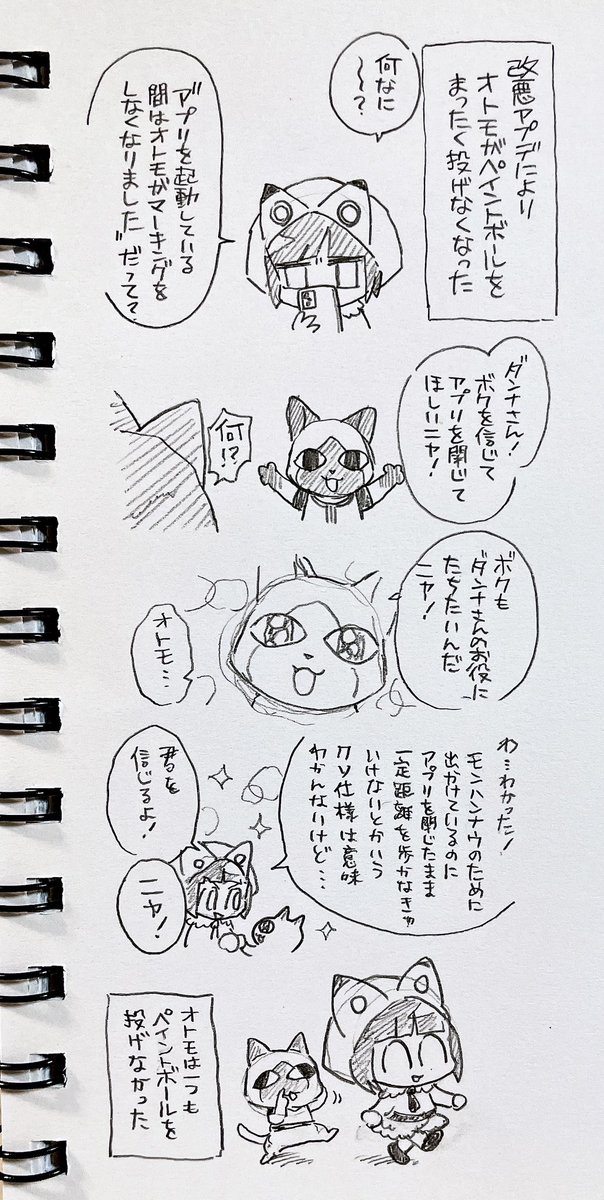 改悪アプデにより
オトモがペイントボールを
まったく投げなくなった
何なに
〜〜?
"アプリを起動している
間はオトモがマーキングを
しなくなりました"だって?
ダンナさん!
ボクを信じて
アプリを閉じて
ほしいニャ!
何!?
ボクも
ダンナさんのお役に
たちたいんだ
ニャ!
オトモ…
わ…わかった!
モンハンナウのために
出かけているのに
アプリを閉じたまま
一定距離を歩かなきゃ
いけないとかいう
クソ仕様は意味
わかんないけど…
君を
信じるよ!
ニャ!
オトモは一つも
ペイントボールを
投げなかった